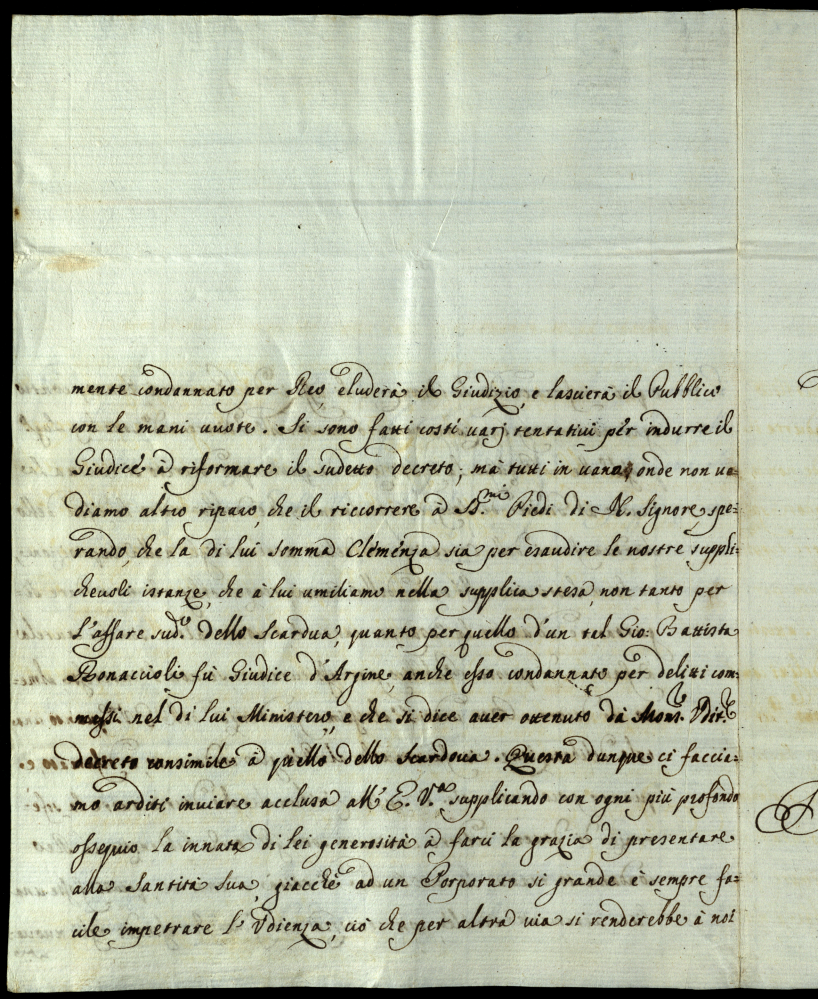 mente condannato per Reo, eluderà il Giudizio, e lascierà il Pubblico
con le mani vuote. Si sono fatti costì varj tentativi per indurre il
Giudice à riformare il sudetto decreto; mà tutti in vano, onde non ve=
diamo altro riparo, che il riccorrere à SS.mi Piedi di N. Signore, spe=
rando, che la di lui somma Clemenza sia per esaudire le nostre suppli=
chevoli istanze, che à lui umiliamo nella supplica stesa, non tanto per
l'affare sud.o dello Scardua, quanto per quello d'un tal Gio: Battista
Bonaccioli fù Giudice d'Argine, anche esso condannato per delitti com=
messi nel di lui Ministero, e che si dice aver ottenuto dà Mons.r Vdit.e
decreto consimile à quello dello Scardova. Questa dunque ci faccia=
mo arditi inviare acclusa all' E. V.ra supplicando con ogni più profondo
ossequio la innata di lei generosità à farci la grazia di presentare
alla Santità Sua, giacchè ad un Porporato si grande è sempre fa=
cile impetrare l' Vdienza, ciò che per altra via si renderebbe à noi